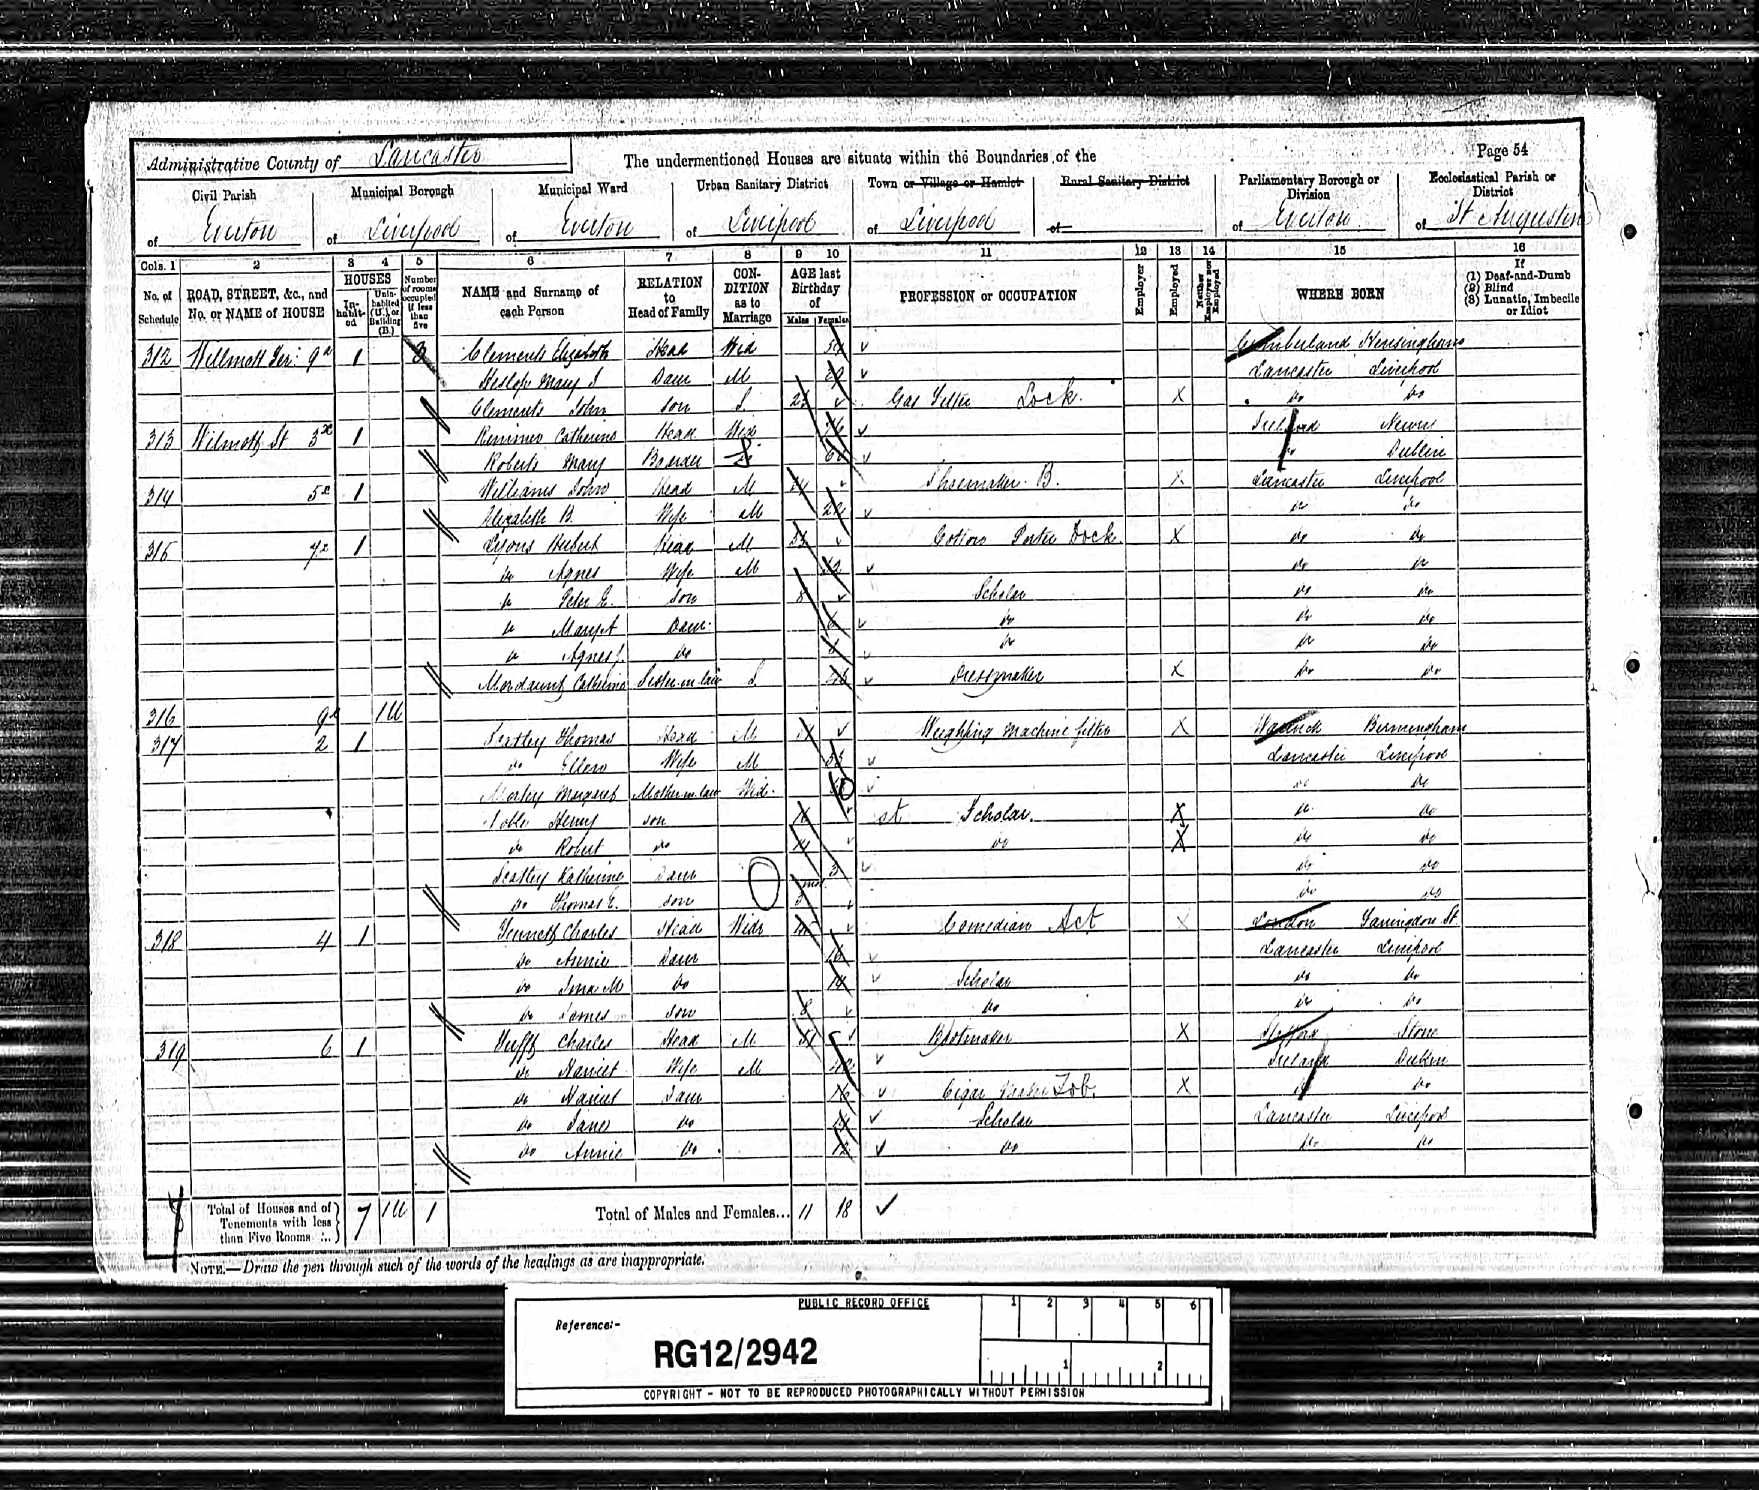 Administrative County of Lancaster
The undermentioned Houses are situate within the Boundaries of the
Page 54
Civil Parish of Everton
Municipal Borough of Liverpool
Municipal Ward of Everton
Urban Sanitary District of Liverpool
Town or Village or Hamlet of Liverpool
Rural Sanitary District of
Parliamentary Borough or Division of Everton
Ecclesiastical Parish or District of St Augustin
Cols. 1 2 3 4 5 6 7 8 9 10 11 12 13 14 15 16
No. of Schedule
ROAD, STREET, &c., and No. or NAME of HOUSE
HOUSES
In-habit-ed
Unin-habited (U.), or Building (B.)
Number of rooms occupied if less than five
NAME and Surname of each Person
RELATION to Head of Family
CON-DITION as to Marriage
AGE last Birthday of
Males Females
PROFESSION or OCCUPATION
Employer
Employed
Neither Employer nor Employed
WHERE BORN
If
(1) Deaf-and-Dumb
(2) Blind
(3) Lunatic, Imbecile or Idiot
312 Willmott Ter: 9a 1 3 Clements Elizabeth Head Wid Cumberland
Mary J Daur M Lancaster Liverpool
Clements John Son S. Gas Fitter Lock. X do do
313 Wilmott St 3 1 Rimmer Catherine Head Wid Ireland Newry
Roberts Mary Boarder do Dublin
314 5 1 Williams John Head M Shoemaker B. X Lancaster Liverpool
Elizabeth B. Wife M do do
315 7 1 Lyons Hubert Head M Cotton Porter Dock. X do do
do Agnes Wife M do do
do Peter E. Son 8 Scholar do do
do Mary A Daur. 6 do do do
do Agnes J. do do do do
Mordaunt Catherine Sister in law S Dressmaker X do do
316 9 1U
317 2 1 Thomas Head M Weighing Machine fitter X Warwick Birmingham
do Ellen Wife M 33 Lancaster Liverpool
Margaret Mother in law Wid. do do
Noble Henry son st Scholar. X do do
do Robert do 14 do X do do
Katherine Daur 3 do do
do Thomas E. son 3 mos do do
318 4 1 Charles Head Widr Comedian Act X London Farringdon St
do Annie Daur 16 Lancaster Liverpool
do M do 14 Scholar do do
do James Son 8 do do do
319 6 1 Charles Head M 51 Bootmaker X Stafford Stone
do Harriet Wife M Ireland Dublin
do Harriet Daur 16 Cigar Maker Tob. X do do
do Jane do 14 Scholar Lancaster Liverpool
do Annie do. 12 do do do
Total of Houses and of Tenements with less than Five Rooms 7 1U 1
Total of Males and Females... 11 18
NOTE.—Draw the pen through such of the words of the headings as are inappropriate.
PUBLIC RECORD OFFICE
1 2 3 4 5 6
Reference:-
RG12/2942
1 2
COPYRIGHT - NOT TO BE REPRODUCED PHOTOGRAPHICALLY WITHOUT PERMISSION